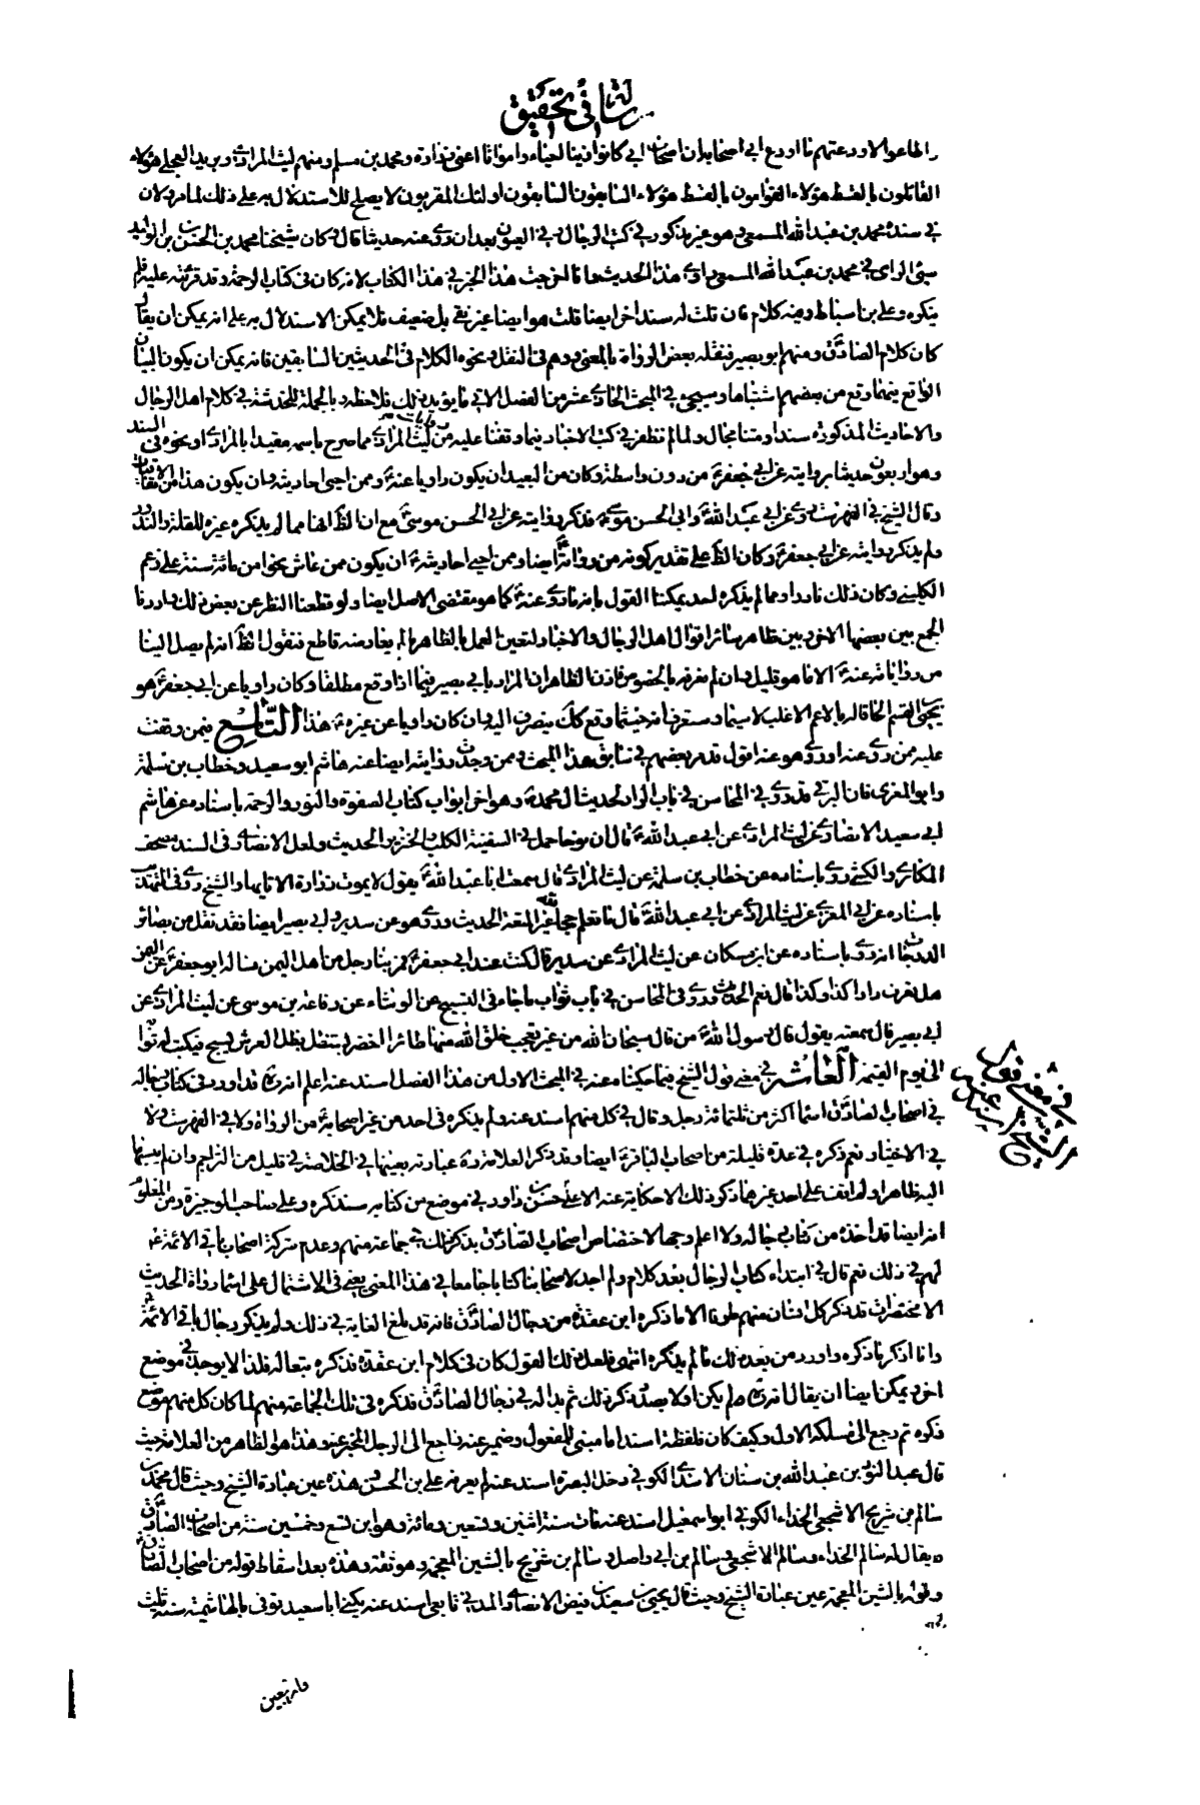 رسالة في تحقيق
اصحاب ابي كانوا زينا احياء وامواتا اعني زرارة ومحمد بن مسلم ومنهم ليث المرادي وبريد العجلي هؤلاء
القائلون بالقسط هؤلاء القوامون بالقسط هؤلاء السابقون السابقون اولئك المقربون لا يصلح للاستدلال به على ذلك لان
في سنده محمد بن عبد الله المسمعي وهو غير مذكور في كتب الرجال وفي العيون بعد ان روى عنه حديثا قال كان شيخنا محمد بن الحسن بن الوليد
سيئ الراي في محمد بن عبد الله المسمعي راوي هذا الحديث وانما اخرجت هذا الخبر في هذا الكتاب لانه كان في كتاب الرحمة وقد قرأته عليه فلم
ينكره وعلي بن اسباط وفيه كلام فان قلت له سند اخر ايضا قلت هو ايضا غير نقي بل ضعيف فلا يمكن الاستدلال به على انه يمكن ان يقال
كان كلام الصادق ومنهم ابو بصير فنقله بعض الرواة بالمعنى ووهم في النقل ونحوه الكلام في الحديثين السابقين فانه يمكن ان يكون البيان
الواقع فيهما وقع من بعضهم اشتباها وسيجيء في المبحث الحادي عشر من الفصل الاتي ما يؤيد ذلك فلاحظه وبالجملة للخدشة في كلام اهل الرجال
والاحاديث المذكورة سندا ومتنا مجال ولما لم نظفر في كتب الاخبار فيما وقفنا عليه من ليث المرادي مما صرح باسمه مقيدا بالمرادي او نحوه في السند
وهو اربعون حديثا بروايته عن ابي جعفر من دون واسطة وكان من البعيد ان يكون راويا عنه وممن احيى احاديثه وان يكون هذا من
وقال الشيخ في الفهرست روى عن ابي عبد الله وابي الحسن موسى فذكر روايته عن ابي الحسن موسى مع ان الظ انها مما لم يذكره غيره للقلة والندور
ولم يذكر روايته عن ابي جعفر وكان الظ على تقدير كونه من رواته ايضا وممن احيى احاديثه ان يكون ممن عاش نحوا من مائة سنة على زعم
الكليني وكان ذلك نادرا ومما لم يذكره احد يمكننا القول بانه ما روى عنه كما هو مقتضى الاصل ايضا ولو قطعنا النظر عن بعض ذلك واردنا
الجمع بين بعضها الاخر وبين ظاهر سائر اقوال اهل الرجال والاخبار لتعين العمل بالظاهر ما لم يعارضه قاطع فنقول الظ انه لم يصل الينا
من رواياته عنه الا ما هو قليل وان لم نعرفه بالخصوص فاذن الظاهر ان المراد بابي بصير فيما اذا وقع مطلقا وكان راويا عن ابي جعفر هو
يحيى القسم الحاقا له بالاعم الاغلب لا سيما وستعرف انه حيثما وقع كك ينصرف اليه وان كان راويا عن غيره هذا التاسع فيمن وقفت
عليه ممن روى عنه او روى هو عنه اقول قد مر بعضهم في سابق هذا المبحث وممن وجدت روايته ايضا عنه هاشم ابو سعيد وخطاب بن سلمة
وابو المغرى فان البرقي قد روى في المحاسن في باب الراد لحديث ال محمد وهو اخر ابواب كتاب الصفوة والنور والرحمة باسناده عن هاشم
ابي سعيد الانصاري عن ليث المرادي عن ابي عبد الله قال ان نوحا حمل في السفينة الكلب والخنزير الحديث ولعل الانصاري في السند مصحف
المكاري والكشي روى باسناده عن خطاب بن سلمة عن ليث المرادي قال سمعت ابا عبد الله يقول لا يموت زرارة الا تايها والشيخ روى في التهذيب
باسناده عن ابي المغرى عن ليث المرادي عن ابي عبد الله قال ما نعلم حجا غير المتعة الحديث وروى هو عن سدير وابي بصير ايضا فقد نقل من بصائر
الدرجات انه روى باسناده عن ابن مسكان عن ليث المرادي عن سدير قال كنت عند ابي جعفر فمر بنا رجل من اهل اليمن فساله ابو جعفر عن اليمن
هل تعرف دار كذا وكذا قال نعم الحديث وروى في المحاسن في باب ثواب ما جاء في التسبيح عن الوشاء عن رفاعة بن موسى عن ليث المرادي عن
ابي بصير قال سمعته يقول قال رسول الله من قال سبحان الله من غير تعجب خلق الله منها طائرا اخضر يستظل بظل العرش يسبح فيكتب له ثوابه
الى يوم القيمة العاشر في معنى قول الشيخ فيما حكيناه عنه في المبحث الاول من هذا الفصل اسند عنه اعلم انه قد اورد في كتاب رجاله
في اصحاب الصادق اسماء اكثر من ثلثمائة رجل وقال في كل منهم اسند عنه ولم يذكره في احد من غير اصحابه من الرواة ولا في الفهرست ولا
في الاختيار نعم ذكره في عدة قليلة من اصحاب الباقر ايضا وقد ذكر العلامة عبارته بعينها في الخلاصة في قليل من التراجم وان لم ينسبها
اليه ظاهرا ولم اقف على احد غيرهما ذكر ذلك الا حكاية عنه الا على حسن بن داود في موضع من كتابه سنذكره وعلى صاحب الوجيزة ومن المعلوم
انه ايضا قد اخذه من كتاب رجاله ولا اعلم وجها لاختصاص اصحاب الصادق بذكر ذلك في جماعة منهم وعدم شركة اصحاب باقي الائمة
لهم في ذلك نعم قال في ابتداء كتاب الرجال بعد كلام ولم اجد لاصحابنا كتابا جامعا في هذا المعنى يعني في الاشتمال على اسماء رواة الحديث
الا مختصرات قد ذكر كل انسان منهم طرفا الا ما ذكره ابن عقدة من رجال الصادق فانه قد بلغ الغاية في ذلك ولم يذكر رجال باقي الائمة
وانا اذكر ما ذكره واورد من بعد ذلك ما لم يذكره انتهى فلعل ذلك القول كان في كلام ابن عقدة فذكره بتعاله فلذا لا يوجد في موضع
اخر ويمكن ايضا ان يقال انه لم يكن اولا بصدد ذكر ذلك ثم بدا له في رجال الصادق فذكره في تلك الجماعة منهم لما كان كل منهم موضع
ذكره ثم رجع الى مسلكه الاول وكيف كان فلفظة اسند اما مبني للمفعول وضمير عنه راجع الى الرجل المخبر عنه وهذا هو الظاهر من العلامة حيث
قال عبد النور بن عبد الله بن سنان الاسدي الكوفي دخل البصرة اسند عنه لم يعرفه علي بن الحسن هذه عين عبارة الشيخ وحيث قال محمد بن
سالم بن شريح الاشجعي الحذاء الكوفي ابو اسمعيل اسند عنه مات سنة اثنين وتسعين ومائة وهو ابن تسع وخمسين سنة من اصحاب الصادق
ويقال له سالم الحذاء وسالم الاشجعي وسالم بن ابي واصل وسالم بن شريح بالشين المعجمة وهو ثقة وهذه بعد اسقاط قوله من اصحاب الصادق
وقوله بالشين المعجمة عين عبارة الشيخ وحيث قال يحيى بن سعيد بن فيض الانصاري المدني تابعي اسند عنه يكنى ابا سعيد توفي بالهاشمية سنة ثلث
في معنى قول
الشيخ اسند عنه
واربعين